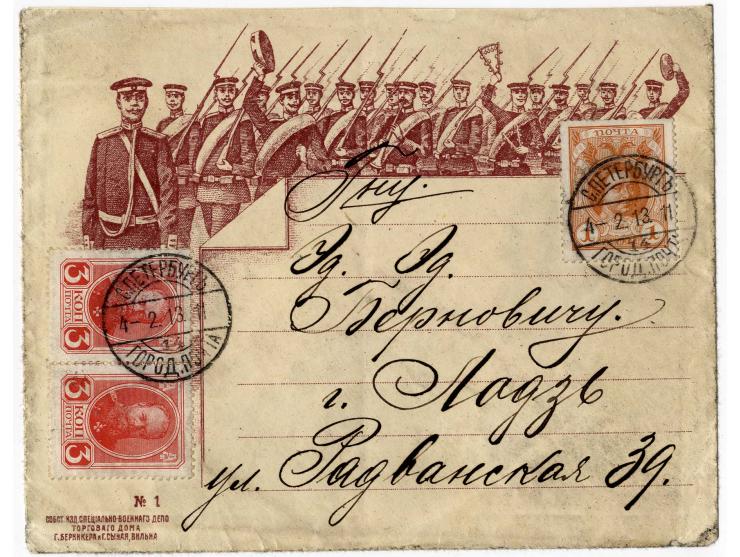 ПОЧТА
1 1
С.ПЕТЕРБУРГЪ
4-2.13.11
14
ГОРОД.ПОЧТА
Гну.
Эд. Эд.
Берновичу.
г. Лодзь
ул. Радванская 39.
3 КОП 3
ПОЧТА
С.ПЕТЕРБУРГЪ
4-2.13.11
14
ГОРОД.ПОЧТА
3 КОП 3
ПОЧТА
№ 1
СОБСТ. ИЗД. СПЕЦІАЛЬНО-ВОЕННАГО ДЕЛО
ТОРГОВАГО ДОМА
Г. БЕРНИКЕРА и Г. СЫНАЯ, ВИЛЬНА